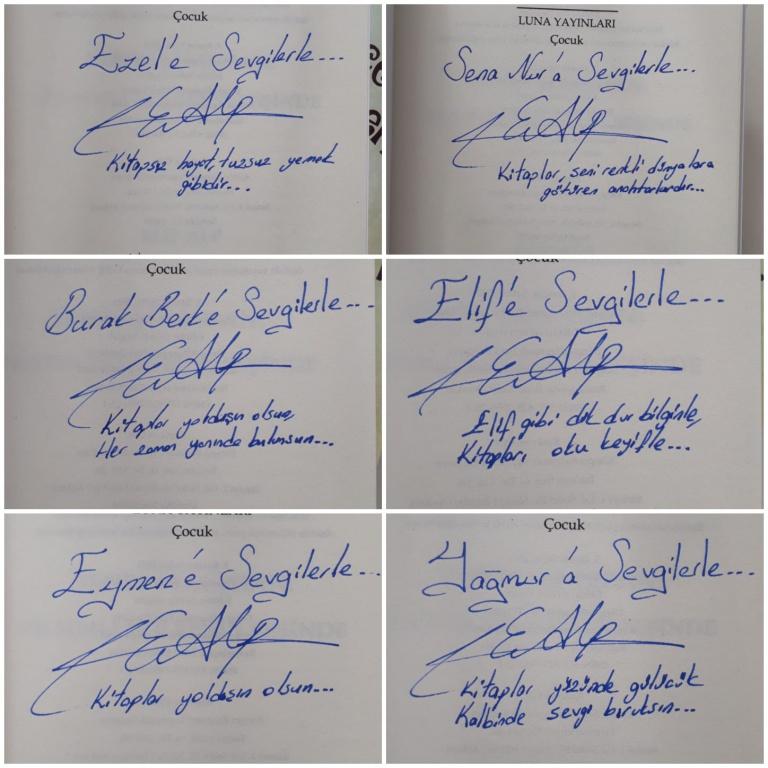 Çocuk
Ezel'e Sevgilerle...
EAlp
Kitapsız hayat, tuzsuz yemek
gibidir...
LUNA YAYINLARI
Çocuk
Sena Nur'a Sevgilerle...
EAlp
Kitaplar, seni renkli dünyalara
götüren anahtarlardır...
Çocuk
Burak Berk'e Sevgilerle...
EAlp
Kitaplar yoldaşın olsun,
Her zaman yanında bulunsun...
Çocuk
Elif'e Sevgilerle...
EAlp
Elif gibi dik dur bilginle,
Kitapları oku keyifle...
Çocuk
Eymen'e Sevgilerle...
EAlp
Kitaplar yoldaşın olsun...
Çocuk
Yağmur'a Sevgilerle...
EAlp
Kitaplar yüzünde gülücük
Kalbinde sevgi bıraksın...